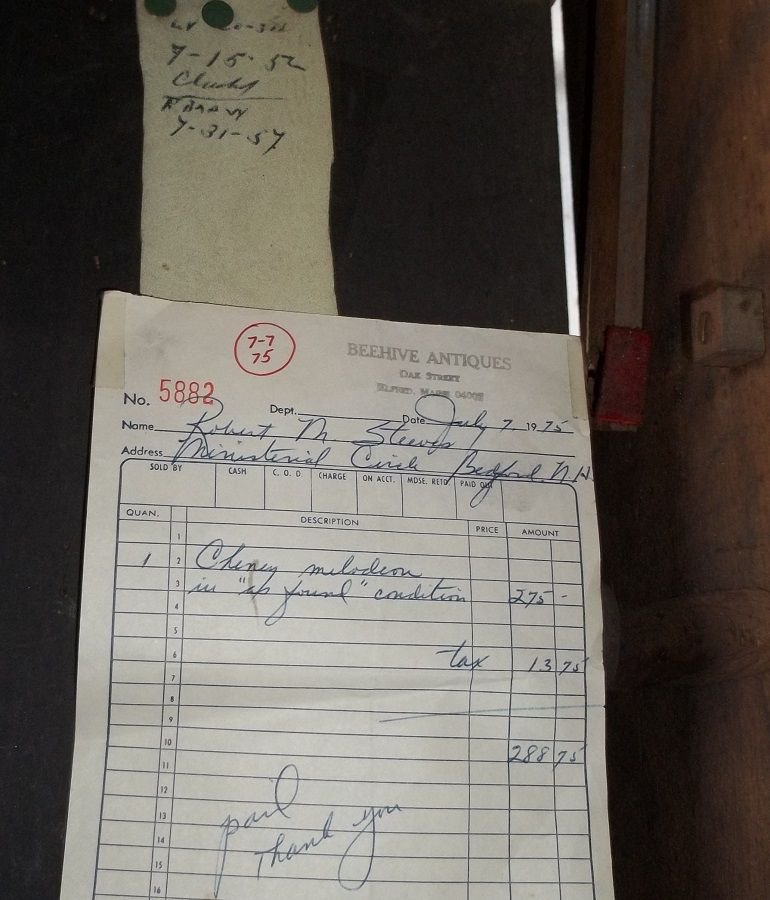 7-15-52
7-31-57
7-7
75
BEEHIVE ANTIQUES
OAK STREET
ALFRED, MAINE 04002
No. 5882
Dept. Date July 7 1975
Name Robert M Steeves
Address Ministerial Circle Bedford, N.H.
SOLD BY CASH C. O. D. CHARGE ON ACCT. MDSE. RETD. PAID OUT
QUAN. DESCRIPTION PRICE AMOUNT
1
1 2 Cheney melodeon
3 in "as found" condition 275 -
4
5
6 tax 13 75
7
8
9
10 288 75
11
12
13 paid
14 Thank you
15
16